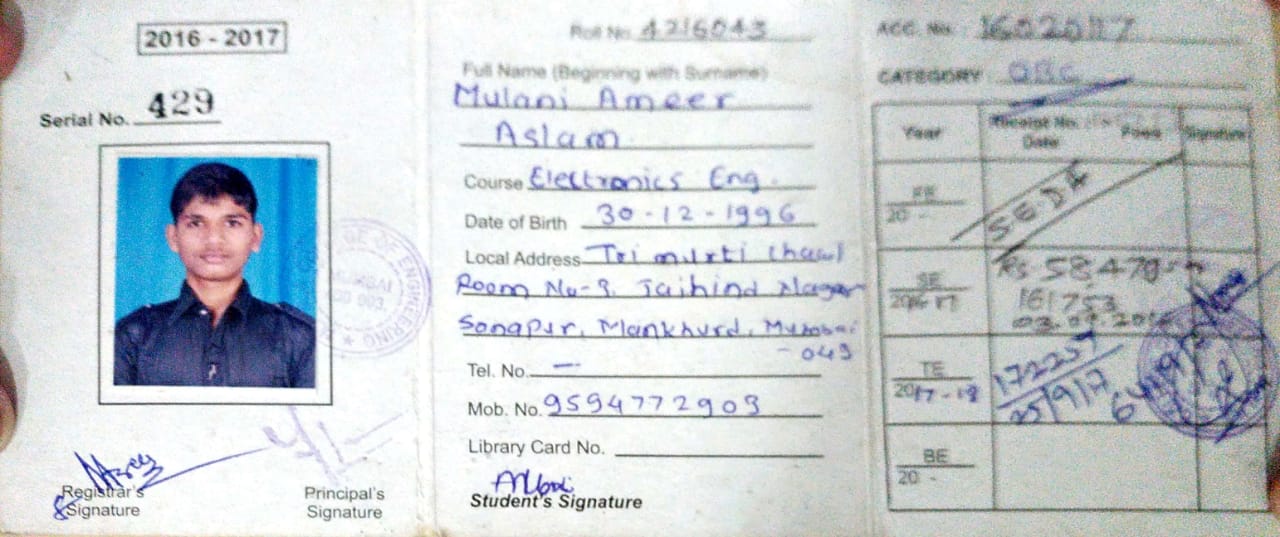 2016 - 2017
Serial No. 429
GE OF ENGINEERING
Registrar's
Signature
Principal's
Signature
Roll No. 4216043
Full Name (Beginning with Surname)
Mulani Ameer
Aslam
Course Electronics Eng.
Date of Birth 30-12-1996
Local Address Trimurti Chawl
Room No-9, Jaihind Nagar
Sonapur, Mankhurd, Mumbai
- 043
Tel. No. —
Mob. No. 9594772903
Library Card No.
Student's Signature
ACC. No. 16020117
CATEGORY : OBC
Year Receipt No. Date Fees Signature
FE
20 -
S.E. DA
SE
2016-17
Rs. 58,470
161753
TE
2017-18
172257
25/9/17
BE
20 -